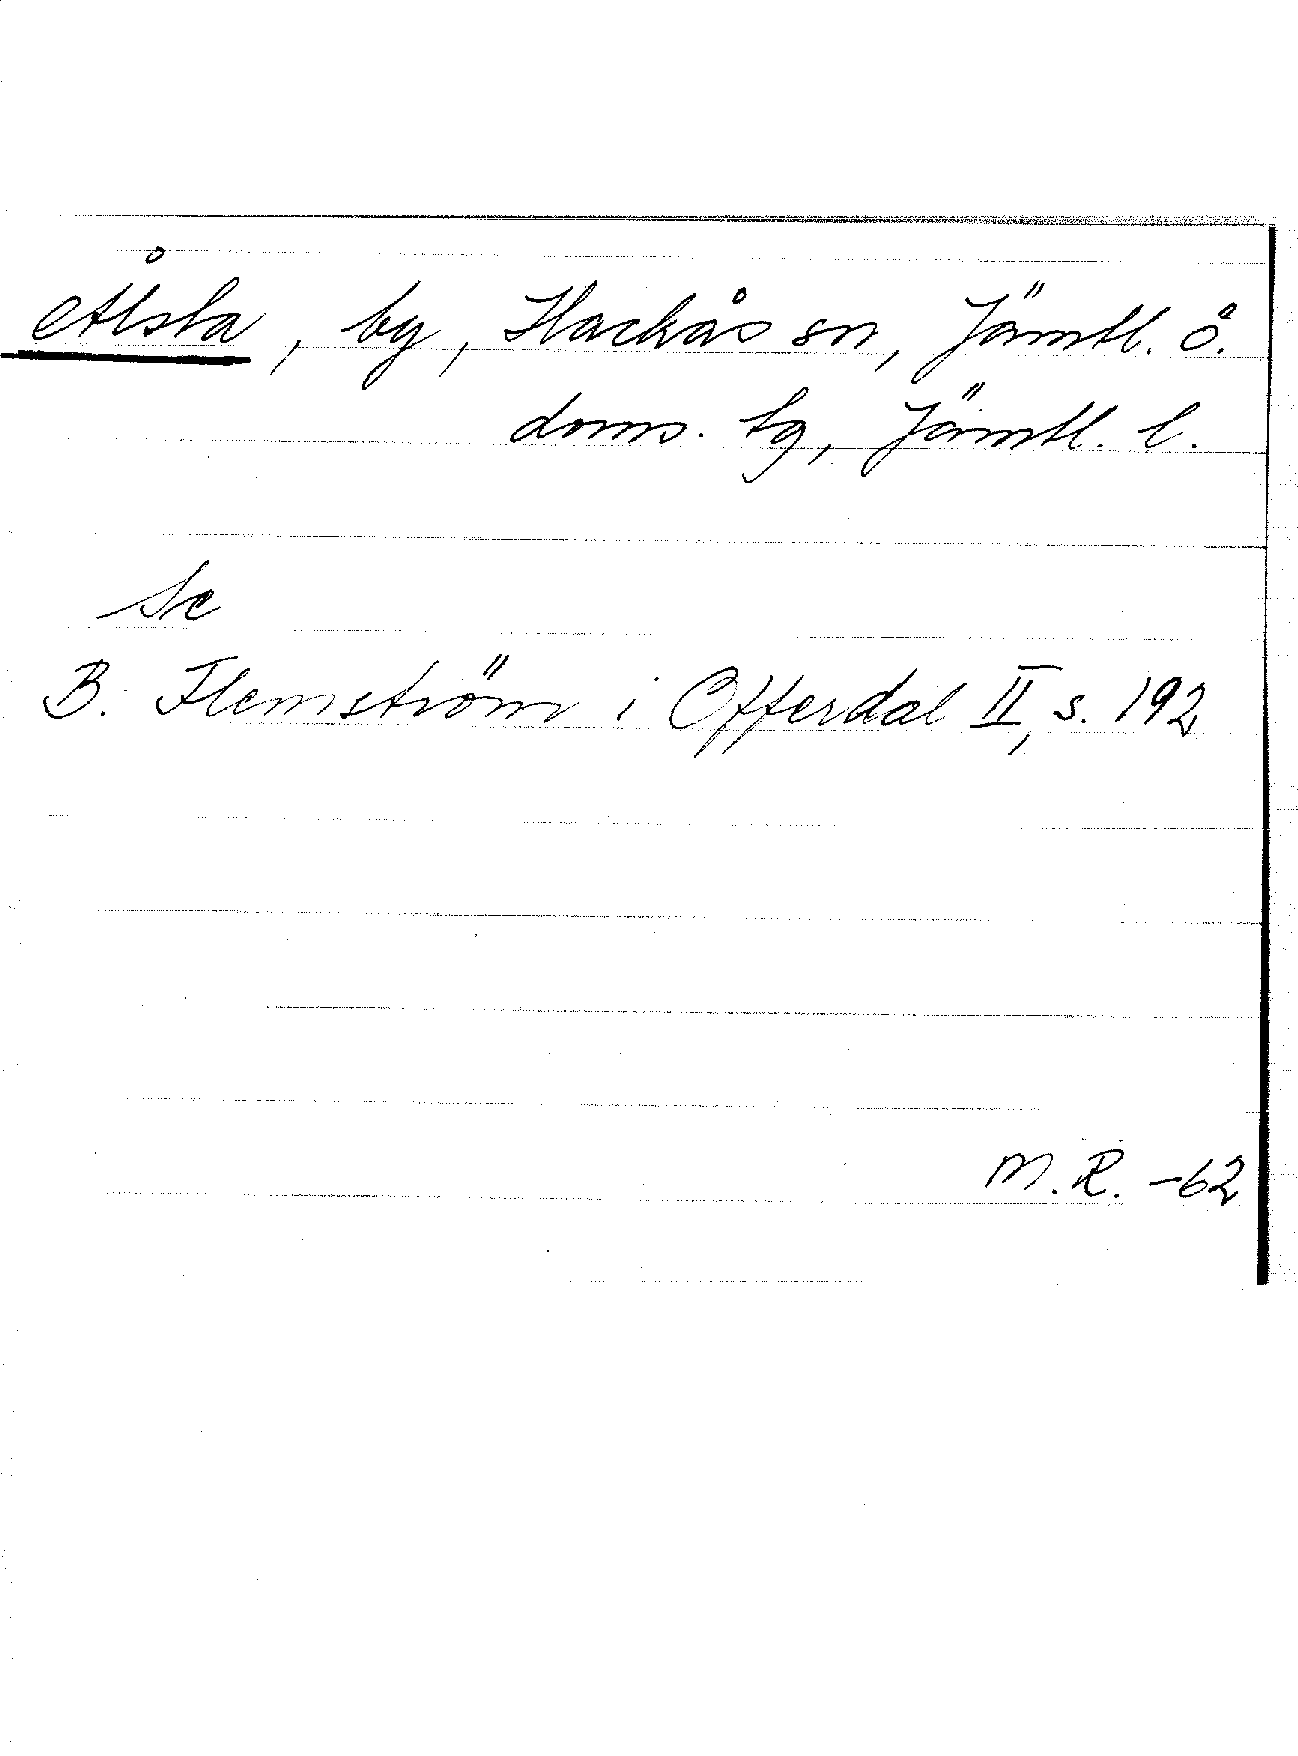 Ålsta, by, Hackås sn, Jämtl. ö.
doms. tg, Jämtl. l.
Se
B. Flemström i Offerdal II, s. 192
M.R. -62